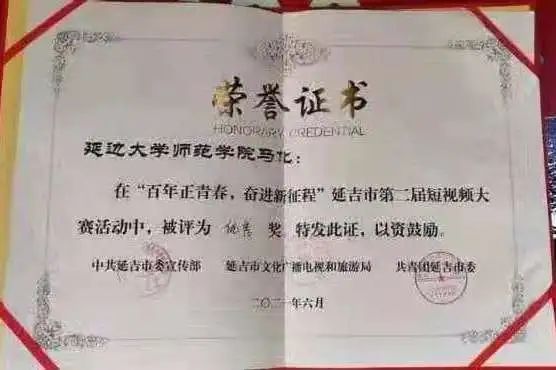 荣誉证书
HONORARY CREDENTIAL
延边大学师范学院马化：
在“百年正青春，奋进新征程”延吉市第二届短视频大
赛活动中，被评为 优秀 奖，特发此证，以资鼓励。
中共延吉市委宣传部 延吉市文化广播电视和旅游局 共青团延吉市委
二〇二一年六月